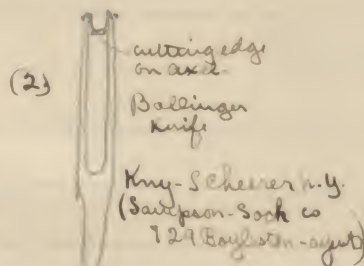 cutting edge
on axis.
(2)
Ballinger
Knife
Kny-Scheerer N.Y.
(Sampson-Soch co
729 Boylston-agent)